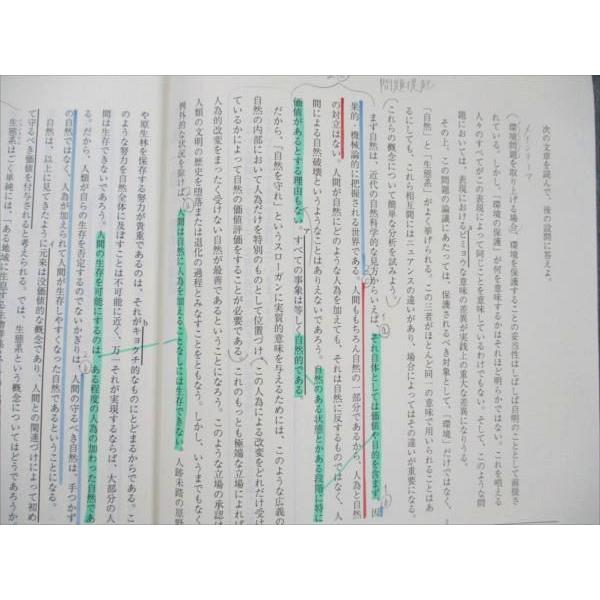 問題提起
メインテーマ
次の文章を読んで、後の設問に答えよ。
環境問題を取り上げる場合、環境を保護することの妥当性はしばしば自明のこととして前提さ
れている。しかし、「環境の保護」が何を意味するかはそれほど明らかではない。これを唱える
人々のすべてがこの表現によって同じことを意味しているわけでもない。そして、このような問
題においては、表現におけるビミョウな意味の差異が実践上の重大な差異になりうる。
その上、この問題の論議にあたっては、保護されるべき対象として、「環境」だけではなく、
「自然」と「生態系」がよく挙げられる。この三者がほとんど同一の意味で用いられることはあ
るにしても、これら相互間にはニュアンスの違いがあり、場合によってはその違いが重要になる。
これらの概念について簡単な分析を試みよう。
まず自然は、近代の自然科学的な見方からいえば、それ自体としては価値や目的を含まず、因
果的・機械論的に把握される世界である。人間ももちろん自然の一部分であるから、人為と自然
の対立はない。人間が自然にどのような人為を加えても、それは自然に反するものではなく、人
間による自然破壊というようなことはありえないであろう。自然のある状態とかある段階に特に
価値があるとする理由もない。すべての事象は等しく自然的である。
だから、「自然を守れ」というスローガンに実質的意味を与えるためには、このような広義の
自然の内部において人為だけを特別のものとして位置づけ、この人為による改変をどれだけ受け
ているかによって自然の価値評価をすることが必要である。これのもっとも極端な立場によれば
人為的改変をまったく受けない自然が最善であるということになろう。このような立場の承認は
人類の文明の歴史を堕落または退化の過程とみなすことをともなう。しかし、いうまでもなく
例外的な状況を除けば、人間は自然に人為を加えることなしには生存できない。人跡未踏の原野
や原生林を保存する努力が貴重であるのは、それがキョクチ的なものにとどまるからである。こ
のような努力を自然全体に及ぼすことは不可能に近く、万一それが実現するならば、大部分の人
間は生存できないであろう。人間の生存を可能にするのは、ある程度の人為の加わった自然であ
る。だから、人類が自らの生存を否定するのでないかぎりは、人間の守るべき自然は、手つかず
の自然ではなく、人為が加えられて人間が生存しやすくなった自然であるということになる。
自然は、以上に見てきたように元来は没価値的な概念であり、人間との関連づけによって初め
て守るべき価値を付与されるものである。では、生態系という概念についてはどうであろうか
生態系はごく単純には、「ある地域に生息する生物